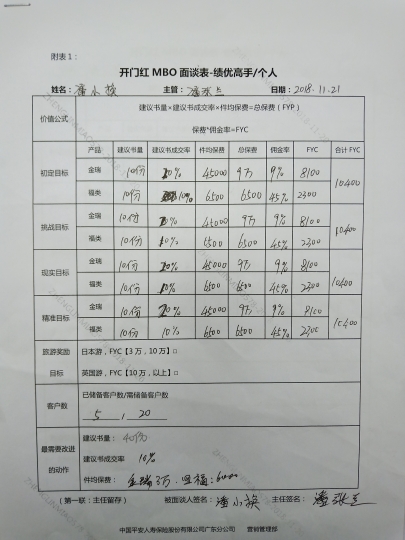 附表1：
开门红 MBO 面谈表-绩优高手/个人
姓名：潘小换 主管：潘张兰 日期：2018.11.21
价值公式 建议书量×建议书成交率×件均保费=总保费（FYP）
保费*佣金率=FYC
产品 建议书量 建议书成交率 件均保费 总保费 佣金率 FYC 合计 FYC
初定目标 金瑞 10份 20% 45000 9万 9% 8100 10400
福类 10份 10% 6500 6500 45% 2300
挑战目标 金瑞 10份 20% 45000 9万 9% 8100 10400
福类 10份 10% 6500 6500 45% 2300
现实目标 金瑞 10份 20% 45000 9万 9% 8100 10400
福类 10份 10% 6500 6500 45% 2300
精准目标 金瑞 10份 20% 45000 9万 9% 8100 10400
福类 10份 10% 6500 6500 45% 2300
旅游奖励 日本游，FYC【3万，10万】□
目标 英国游，FYC【10万，以上】□
客户数 已储备客户数/需储备客户数
5 / 20
最需要改进 建议书量： 40份
的动作 建议书成交率 10%
件均保费： 金瑞3万. 福：6000
（第一联：主任留存） 被面谈人签名：潘小换 主任签名：潘张兰
中国平安人寿保险股份有限公司广东分公司 营销管理部